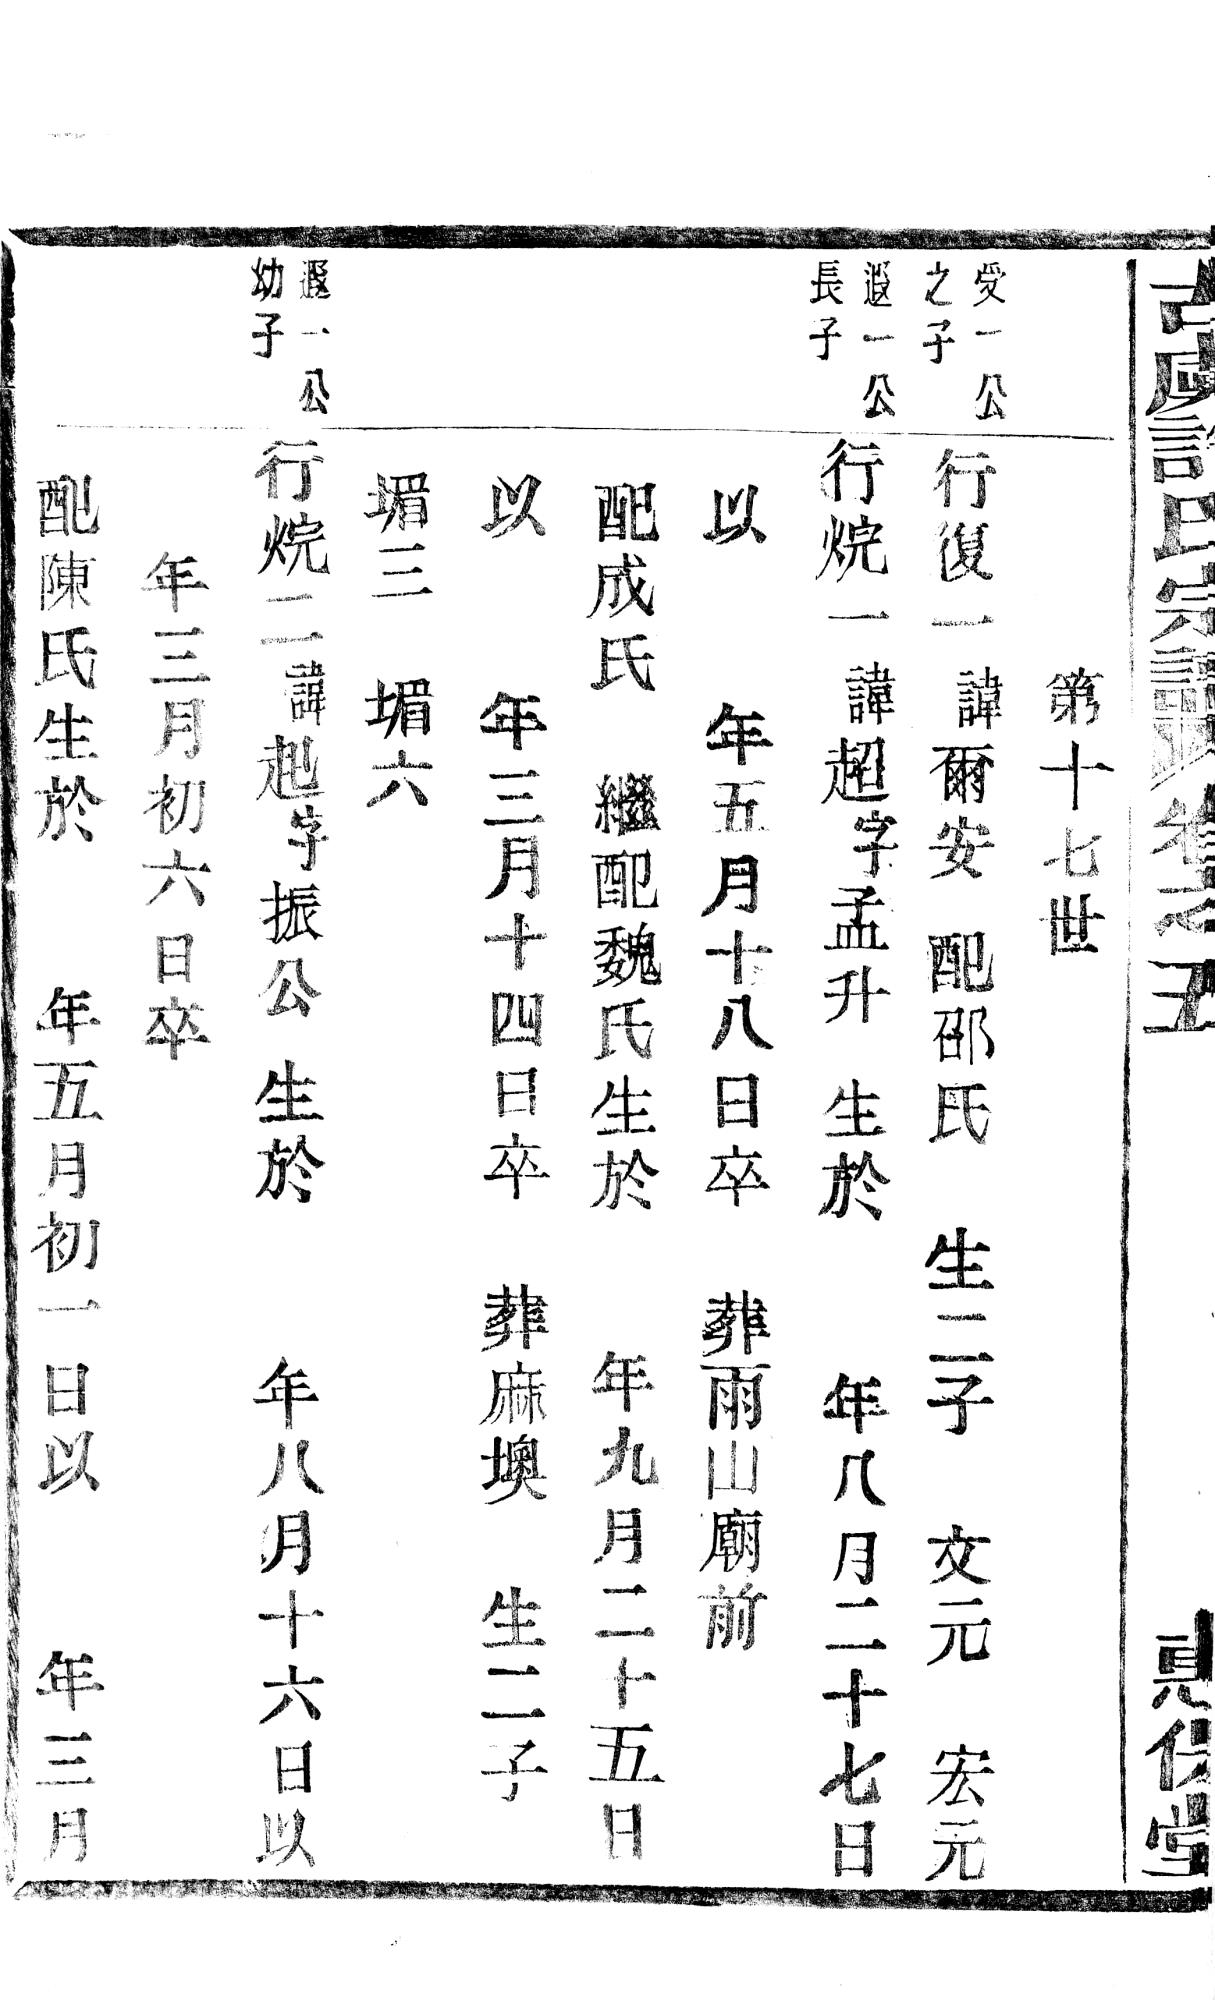 氏宗譜卷之五
堂
第十七世
受一公
之子
行復一 諱爾安 配邵氏 生二子 文元 宏元
遐一公
長子
行烷一 諱超字孟升 生於 年八月二十七日
以 年五月十八日卒 葬雨山廟前
配成氏 繼配魏氏生於 年九月二十五日
以 年三月十四日卒 葬麻墺 生二子
堳三 堳六
遐一公
幼子
行烷二諱起字振公 生於 年八月十六日以
年三月初六日卒
配陳氏生於 年五月初一日以 年三月